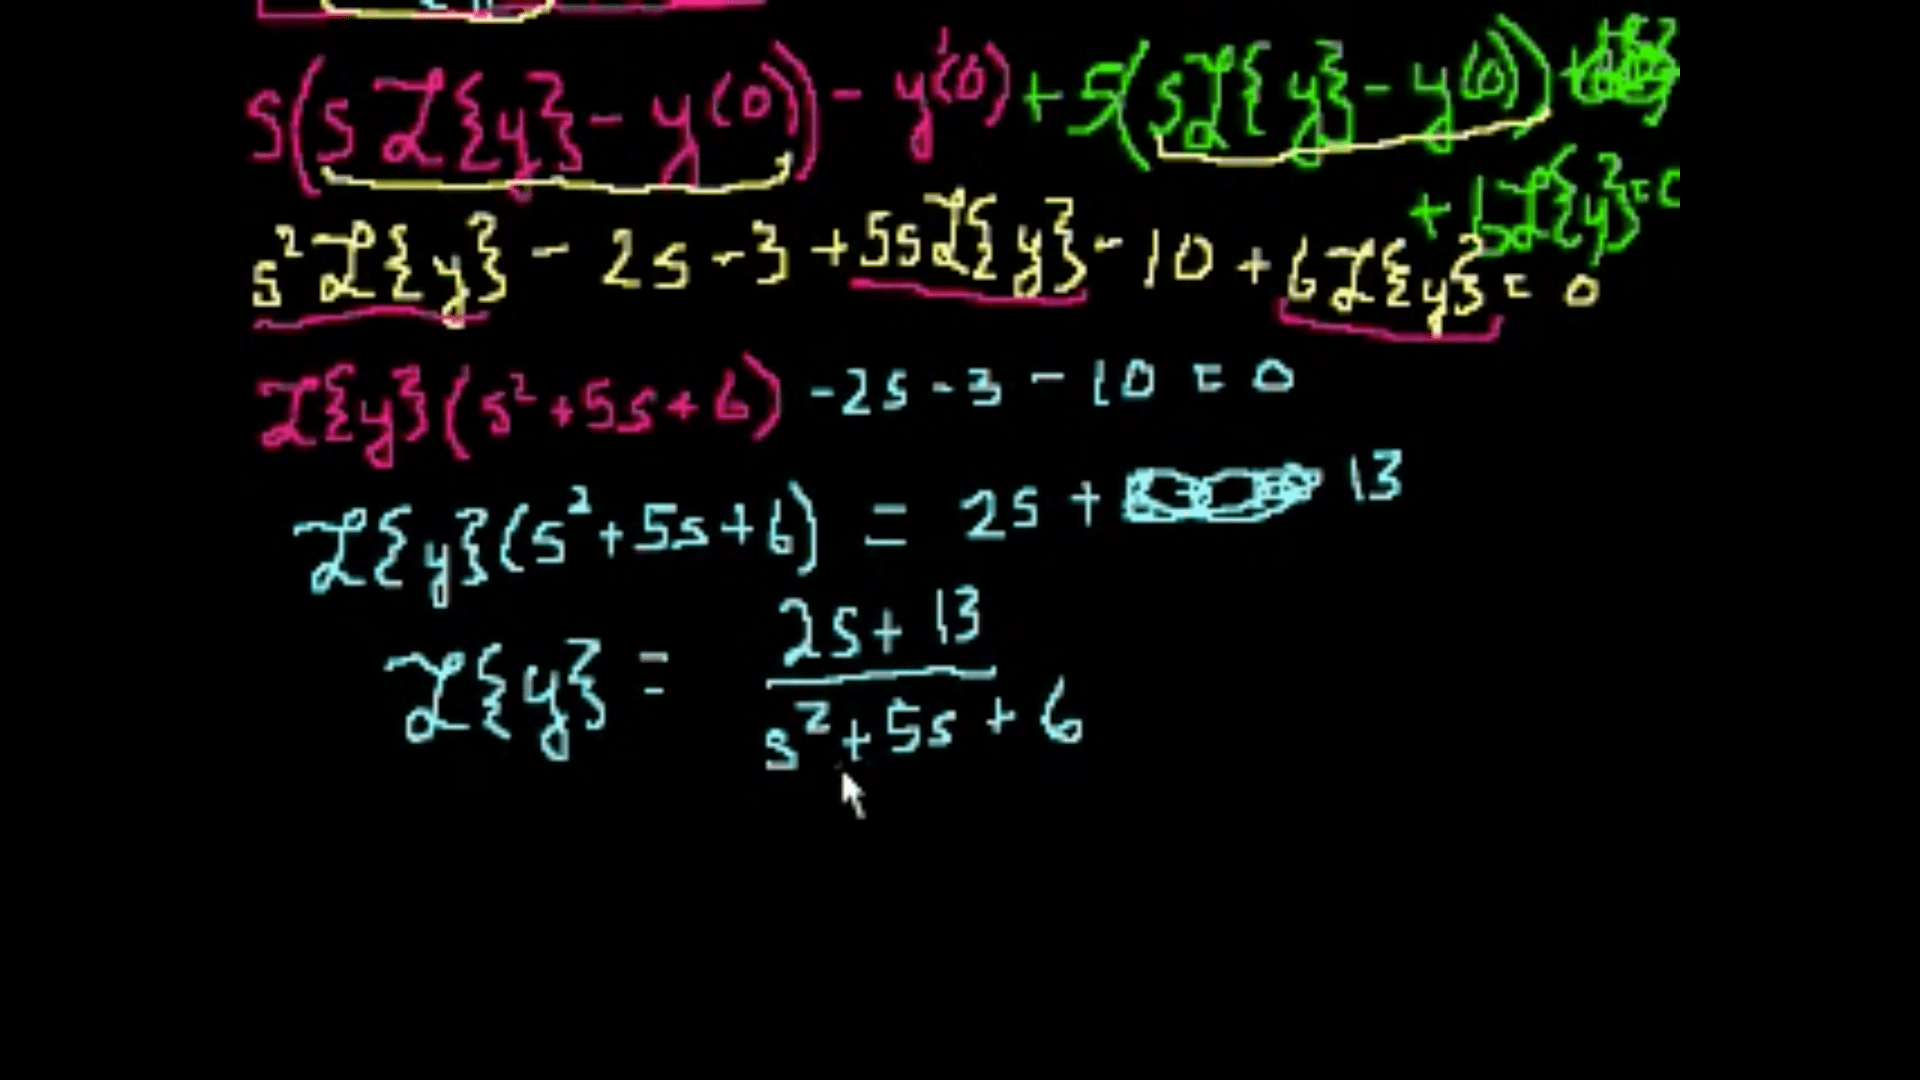 s(sℒ{y} - y(0)) - y'(0) + 5(sℒ{y} - y(0))
+ 6ℒ{y} = 0
s²ℒ{y} - 2s - 3 + 5sℒ{y} - 10 + 6ℒ{y} = 0
ℒ{y}(s² + 5s + 6) - 2s - 3 - 10 = 0
ℒ{y}(s² + 5s + 6) = 2s + 13
ℒ{y} = 2s + 13
s² + 5s + 6